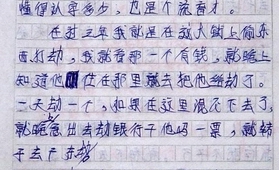 懂得认字多少，也是个流奋才。
在过三年我就是在这大街上偷东
西打劫，我就看那一个有钱，就晚上
知道他住在那里就去把他给劫了。
一天劫一个，如果在这里混不下去了。
就随意出去劫银行干他吗一票，就转
去广东